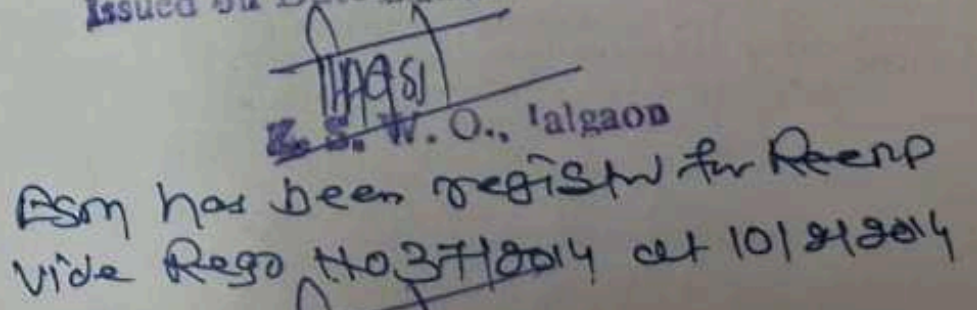 Issued on
Z. S. W. O., Jalgaon
ESM has been registw for Reemp
vide Rego No 37/2014 at 10/2/2014